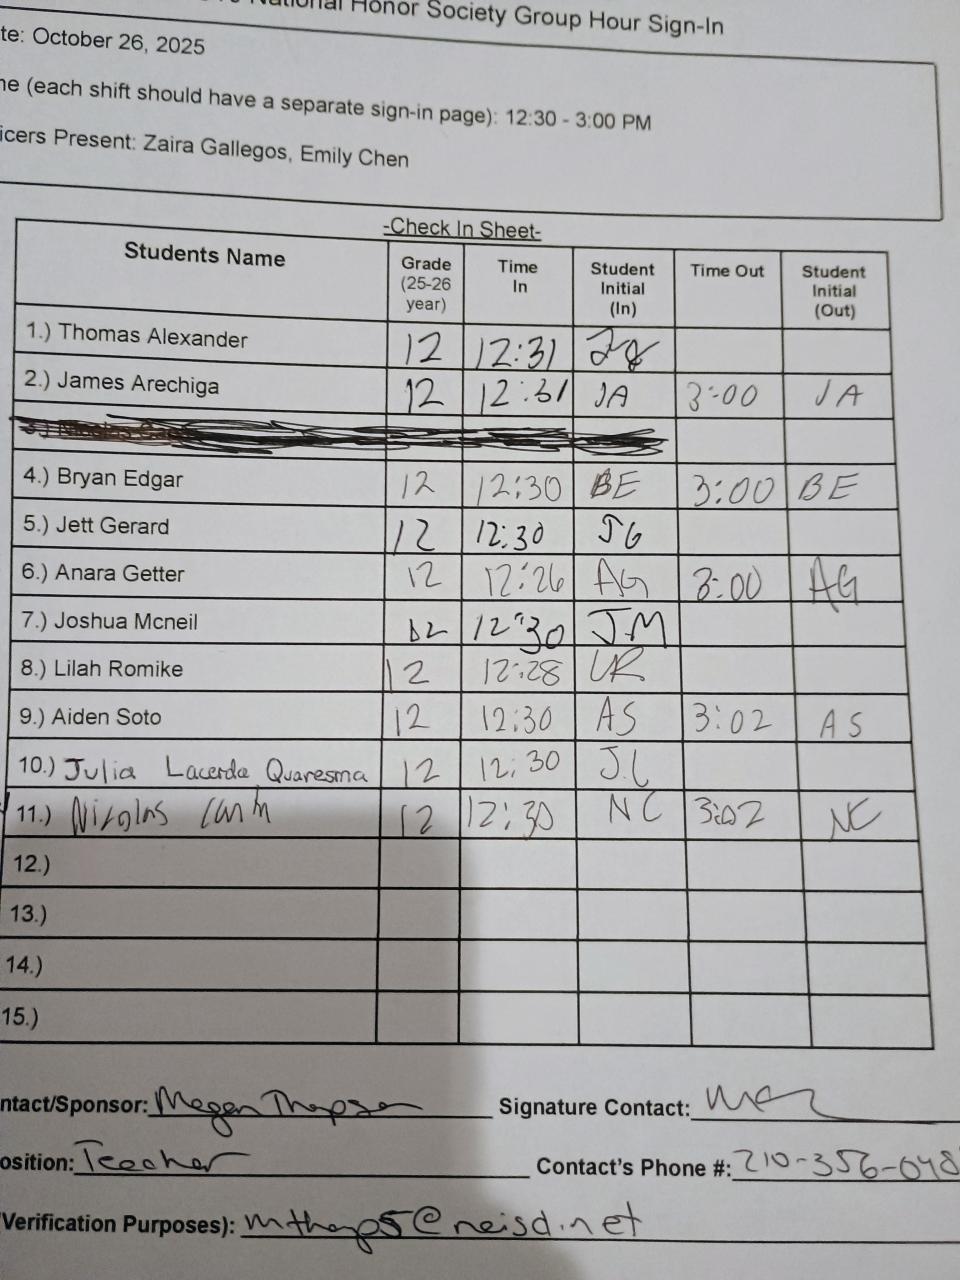 National Honor Society Group Hour Sign-In
te: October 26, 2025
ne (each shift should have a separate sign-in page): 12:30 - 3:00 PM
icers Present: Zaira Gallegos, Emily Chen
-Check In Sheet-
Students Name Grade (25-26 year) Time In Student Initial (In) Time Out Student Initial (Out)
1.) Thomas Alexander 12 12:31
2.) James Arechiga 12 12:31 JA 3:00 JA
4.) Bryan Edgar 12 12:30 BE 3:00 BE
5.) Jett Gerard 12 12:30 JG
6.) Anara Getter 12 12:26 AG 3:00 AG
7.) Joshua Mcneil 12 12:30 JM
8.) Lilah Romike 12 12:28 LR
9.) Aiden Soto 12 12:30 AS 3:02 AS
10.) Julia Lacerda Quaresma 12 12:30 J.L
11.) Nicolas 12 12:30 NC 3:02 NC
12.)
13.)
14.)
15.)
ntact/Sponsor: Megan Signature Contact:
osition: Teacher Contact's Phone #: 210-356-048
Verification Purposes): @neisd.net